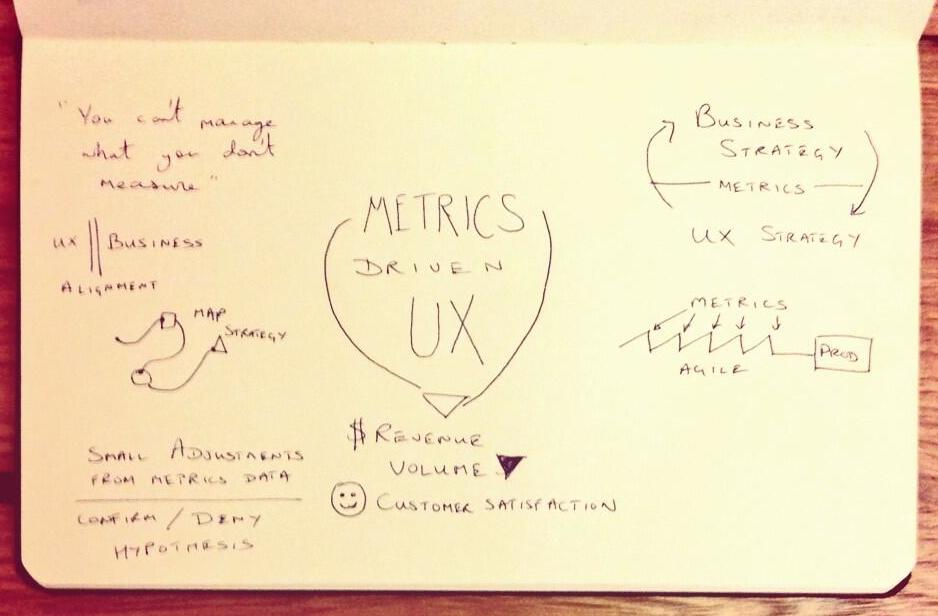 "You can't manage
what you don't
measure"
UX || BUSINESS
ALIGNMENT
MAP
STRATEGY
SMALL ADJUSTMENTS
FROM METRICS DATA
CONFIRM / DENY
HYPOTHESIS
METRICS
DRIVEN
UX
$ REVENUE
VOLUME
CUSTOMER SATISFACTION
BUSINESS
STRATEGY
METRICS
UX STRATEGY
METRICS
AGILE
PROD